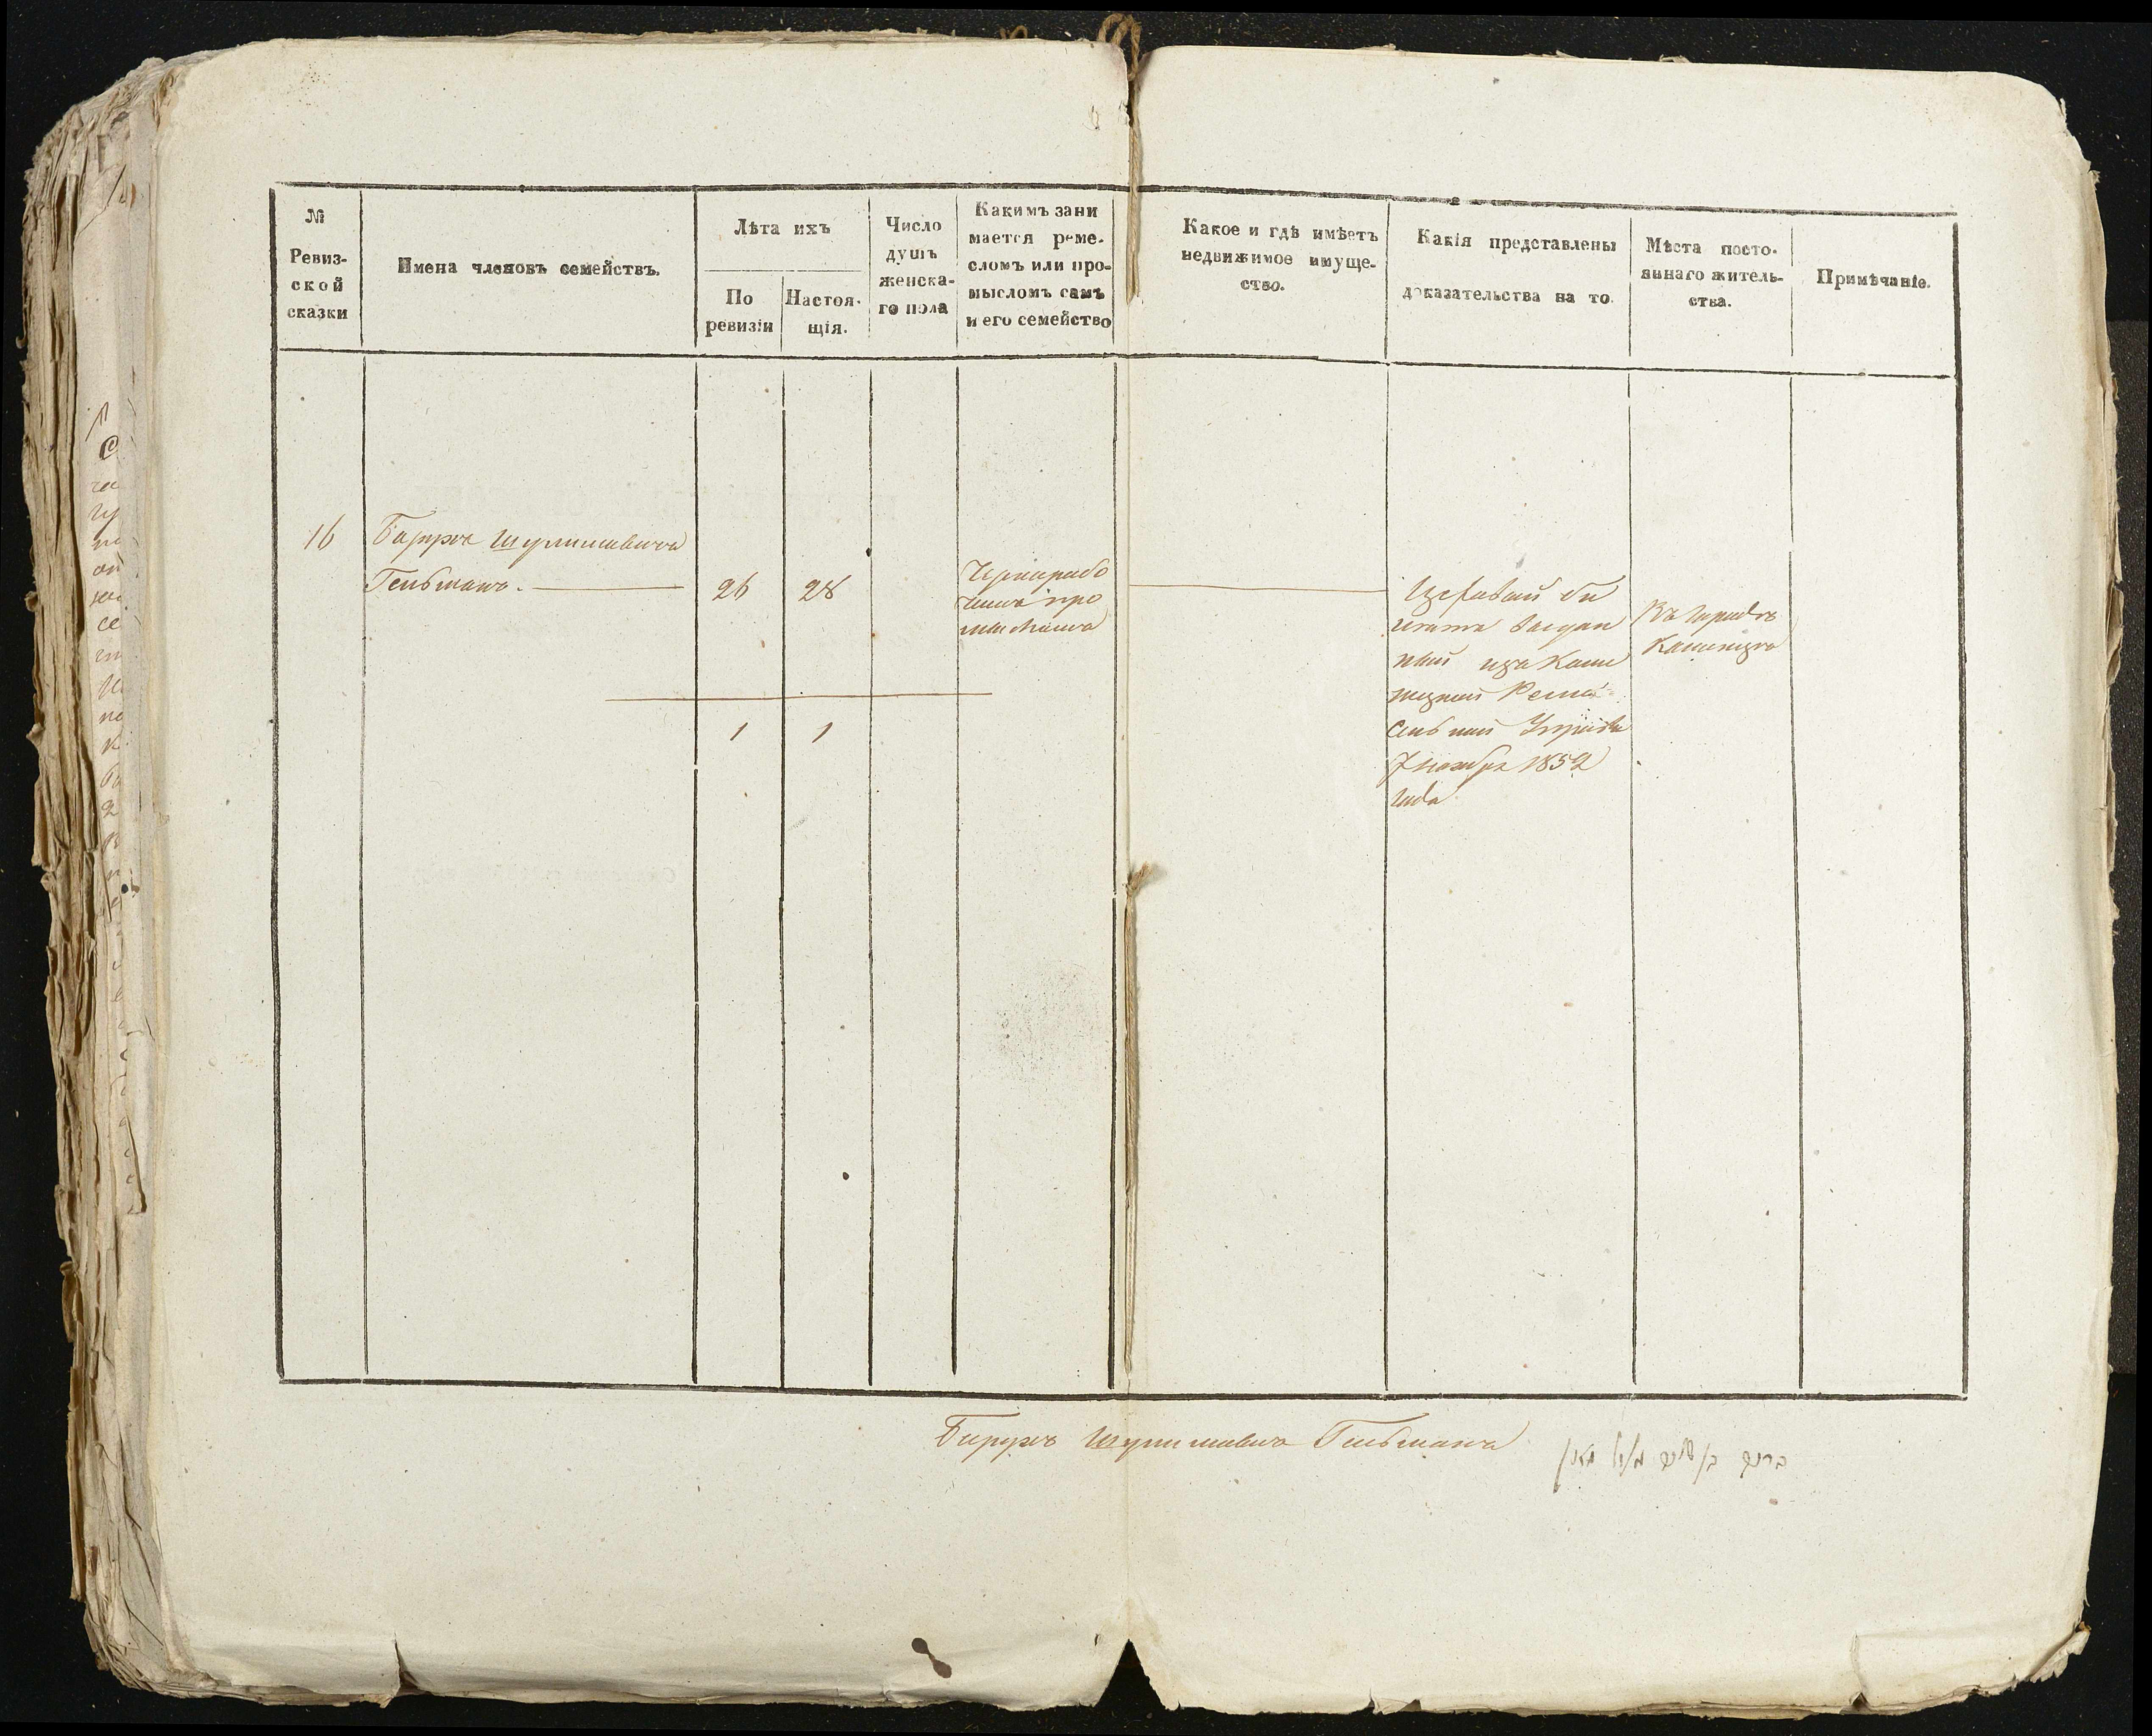 №
Ревиз-
ской
сказки
Имена членовъ семействъ.
Лѣта ихъ
По
ревизіи
Настоя-
щія.
Число
душъ
женска-
го пола
Какимъ зани
мается реме-
сломъ или про-
мысломъ самъ
и его семейство
Какое и гдѣ имѣетъ
недвижимое имуще-
ство.
Какія представлены
доказательства на то.
Мѣста посто-
яннаго житель-
ства.
Примѣчаніе.
16
Борухъ Шулимовичъ
Гельманъ.
26
28
Чернорабо
чимъ про
мысломъ
1
1
Цеховый би
летъ выдан
ный изъ Каме
нецкой Реме
сленной Управы
7 ноября 1852
года
Въ городѣ
Каменцѣ
Борухъ Шулимовичъ Гельманъ
ברוך בן